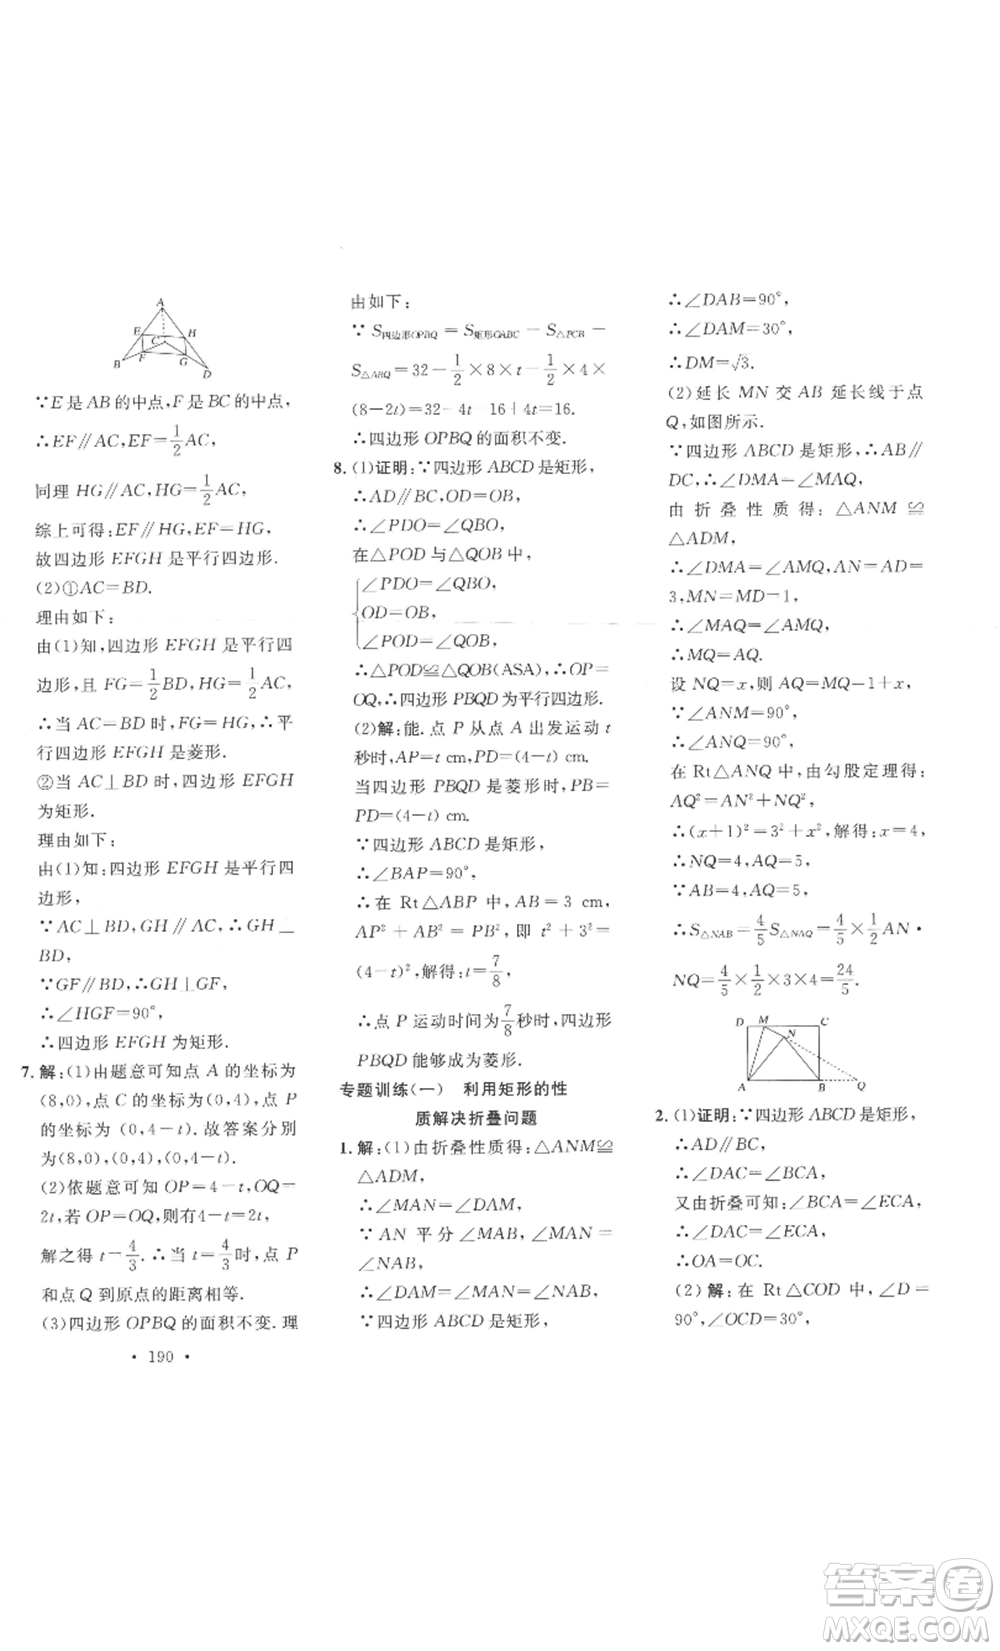 A
E
H
C
B
F
G
D
∵E是AB的中点,F是BC的中点,
∴EF∥AC,EF=1/2AC,
同理 HG∥AC,HG=1/2AC,
综上可得:EF∥HG,EF=HG,
故四边形 EFGH 是平行四边形.
(2)①AC=BD.
理由如下:
由(1)知,四边形 EFGH 是平行四
边形,且 FG=1/2BD,HG=1/2AC,
∴当 AC=BD 时,FG=HG,∴平
行四边形 EFGH 是菱形.
②当 AC⊥BD 时,四边形 EFGH
为矩形.
理由如下:
由(1)知:四边形 EFGH 是平行四
边形,
∵AC⊥BD,GH∥AC,∴GH⊥
BD,
∵GF∥BD,∴GH⊥GF,
∴∠HGF=90°,
∴四边形 EFGH 为矩形.
7. 解:(1)由题意可知点 A 的坐标为
(8,0),点 C 的坐标为(0,4),点 P
的坐标为 (0,4-t). 故答案分别
为(8,0),(0,4),(0,4-t).
(2)依题意可知 OP=4-t,OQ=
2t,若 OP=OQ,则有4-t=2t,
解之得 t=4/3.∴当 t=4/3时,点 P
和点 Q 到原点的距离相等.
(3)四边形 OPBQ 的面积不变. 理
· 190 ·
由如下:
∵ S四边形OPBQ = S矩形OABC - S△PCB -
S△ABQ=32-1/2×8×t-1/2×4×
(8-2t)=32-4t-16+4t=16.
∴四边形 OPBQ 的面积不变.
8. (1)证明:∵四边形 ABCD 是矩形,
∴AD∥BC,OD=OB,
∴∠PDO=∠QBO,
在△POD 与△QOB 中,
{∠PDO=∠QBO,
OD=OB,
∠POD=∠QOB,
∴△POD≌△QOB(ASA),∴OP=
OQ,∴四边形 PBQD 为平行四边形.
(2)解:能. 点 P 从点 A 出发运动 t
秒时,AP=t cm,PD=(4-t) cm.
当四边形 PBQD 是菱形时,PB=
PD=(4-t) cm.
∵四边形 ABCD 是矩形,
∴∠BAP=90°,
∴在 Rt△ABP 中,AB=3 cm,
AP²+AB²=PB²,即 t²+3²=
(4-t)²,解得:t=7/8,
∴点 P 运动时间为7/8秒时,四边形
PBQD 能够成为菱形.
专题训练(一) 利用矩形的性
质解决折叠问题
1. 解:(1)由折叠性质得:△ANM≌
△ADM,
∴∠MAN=∠DAM,
∵AN 平分∠MAB,∠MAN=
∠NAB,
∴∠DAM=∠MAN=∠NAB,
∵四边形 ABCD 是矩形,
∴∠DAB=90°,
∴∠DAM=30°,
∴DM=√3.
(2)延长 MN 交 AB 延长线于点
Q,如图所示.
∵四边形 ABCD 是矩形,∴AB∥
DC,∴∠DMA=∠MAQ,
由折叠性质得:△ANM≌
△ADM,
∴∠DMA=∠AMQ,AN=AD=
3,MN=MD=1,
∴∠MAQ=∠AMQ,
∴MQ=AQ.
设 NQ=x,则 AQ=MQ=1+x,
∵∠ANM=90°,
∴∠ANQ=90°,
在 Rt△ANQ 中,由勾股定理得:
AQ²=AN²+NQ²,
∴(x+1)²=3²+x²,解得:x=4,
∴NQ=4,AQ=5,
∵AB=4,AQ=5,
∴S△NAB=4/5S△NAQ=4/5×1/2AN·
NQ=4/5×1/2×3×4=24/5.
D M C
N
A B Q
2. (1)证明:∵四边形 ABCD 是矩形,
∴AD∥BC,
∴∠DAC=∠BCA,
又由折叠可知:∠BCA=∠ECA,
∴∠DAC=∠ECA,
∴OA=OC.
(2) 解:在 Rt△COD 中,∠D=
90°,∠OCD=30°,
答案圈
MXQE.COM